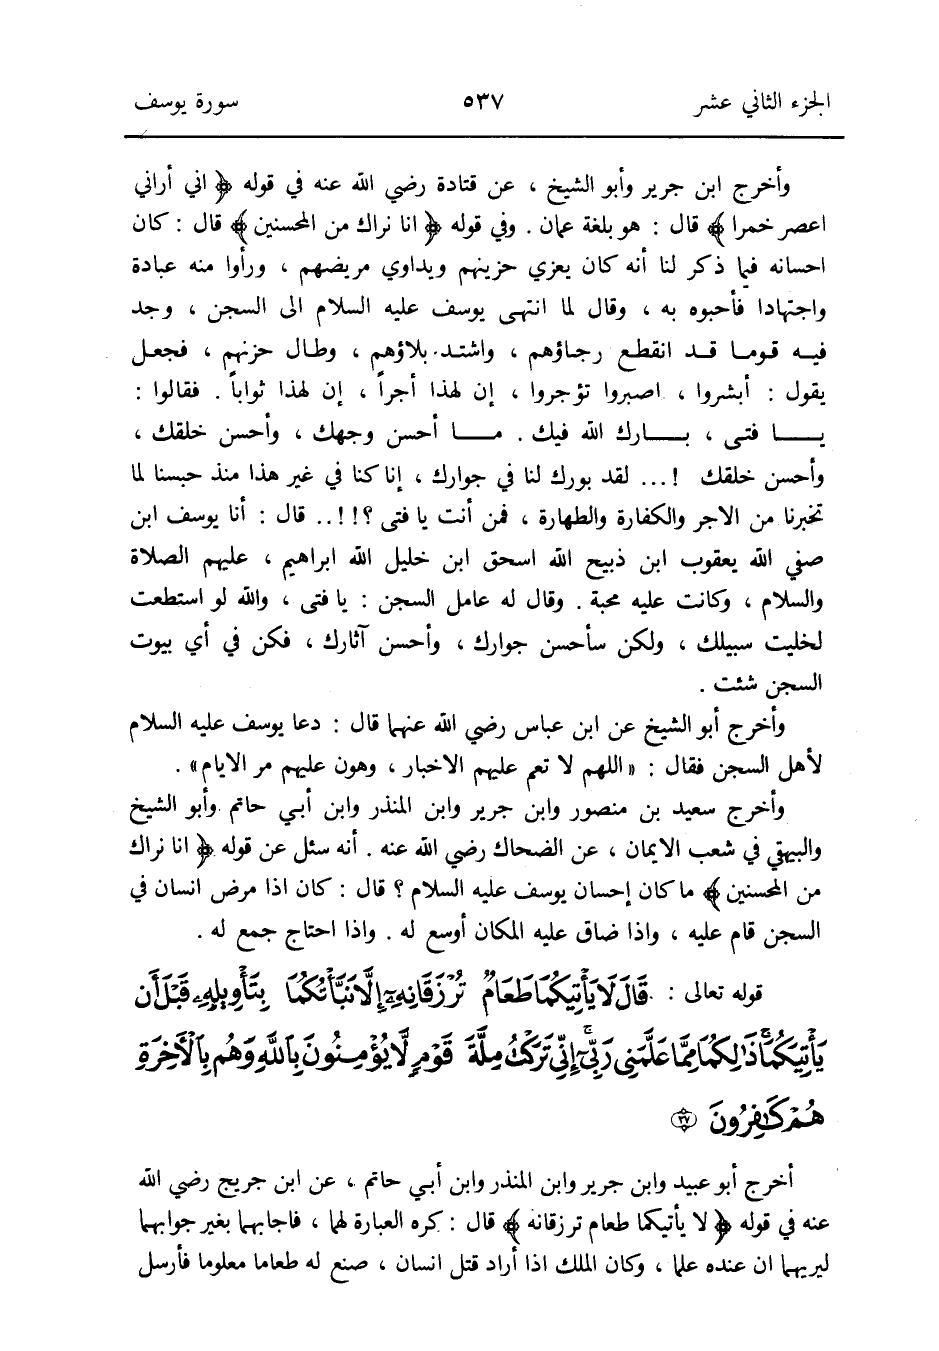 الجزء الثاني عشر ٥٣٧ سورة يوسف
وأخرج ابن جرير وأبو الشيخ ، عن قتادة رضي الله عنه في قوله ﴿ اني أراني
اعصر خمرا ﴾ قال : هو بلغة عمان . وفي قوله ﴿ انا نراك من المحسنين ﴾ قال : كان
احسانه فيما ذكر لنا أنه كان يعزي حزينهم ويداوي مريضهم ، ورأوا منه عبادة
واجتهادا فأحبوه به ، وقال لما انتهى يوسف عليه السلام الى السجن ، وجد
فيه قوما قد انقطع رجاؤهم ، واشتد بلاؤهم ، وطال حزنهم ، فجعل
يقول : أبشروا ، اصبروا تؤجروا ، إن لهذا أجراً ، إن لهذا ثواباً . فقالوا :
يا فتى ، بارك الله فيك . ما أحسن وجهك ، وأحسن خلقك ،
وأحسن خلقك !... لقد بورك لنا في جوارك ، إنا كنا في غير هذا منذ حبسنا لما
تخبرنا من الاجر والكفارة والطهارة ، فمن أنت يا فتى ؟!!.. قال : أنا يوسف ابن
صفي الله يعقوب ابن ذبيح الله اسحق ابن خليل الله ابراهيم ، عليهم الصلاة
والسلام ، وكانت عليه محبة . وقال له عامل السجن : يا فتى ، والله لو استطعت
لخليت سبيلك ، ولكن سأحسن جوارك ، وأحسن آثارك ، فكن في أي بيوت
السجن شئت .
وأخرج أبو الشيخ عن ابن عباس رضي الله عنهما قال : دعا يوسف عليه السلام
لأهل السجن فقال : «اللهم لا تعم عليهم الاخبار ، وهون عليهم مر الايام» .
وأخرج سعيد بن منصور وابن جرير وابن المنذر وابن أبي حاتم وأبو الشيخ
والبيهقي في شعب الايمان ، عن الضحاك رضي الله عنه . أنه سئل عن قوله ﴿ انا نراك
من المحسنين ﴾ ما كان إحسان يوسف عليه السلام ؟ قال : كان اذا مرض انسان في
السجن قام عليه ، واذا ضاق عليه المكان أوسع له . واذا احتاج جمع له .
قوله تعالى : قَالَ لَا يَأْتِيكُمَا طَعَامٌ تُرْزَقَانِهِۦٓ إِلَّا نَبَّأْتُكُمَا بِتَأْوِيلِهِۦ قَبْلَ أَن
يَأْتِيَكُمَاۚ ذَٰلِكُمَا مِمَّا عَلَّمَنِى رَبِّىٓۚ إِنِّى تَرَكْتُ مِلَّةَ قَوْمٍ لَّا يُؤْمِنُونَ بِٱللَّهِ وَهُم بِٱلْأَخِرَةِ
هُمْ كَٰفِرُونَ ٣٧
أخرج أبو عبيد وابن جرير وابن المنذر وابن أبي حاتم ، عن ابن جريج رضي الله
عنه في قوله ﴿ لا يأتيكما طعام ترزقانه ﴾ قال : كره العبارة لهما ، فاجابهما بغير جوابهما
ليريهما ان عنده علما ، وكان الملك اذا أراد قتل انسان ، صنع له طعاما معلوما فأرسل